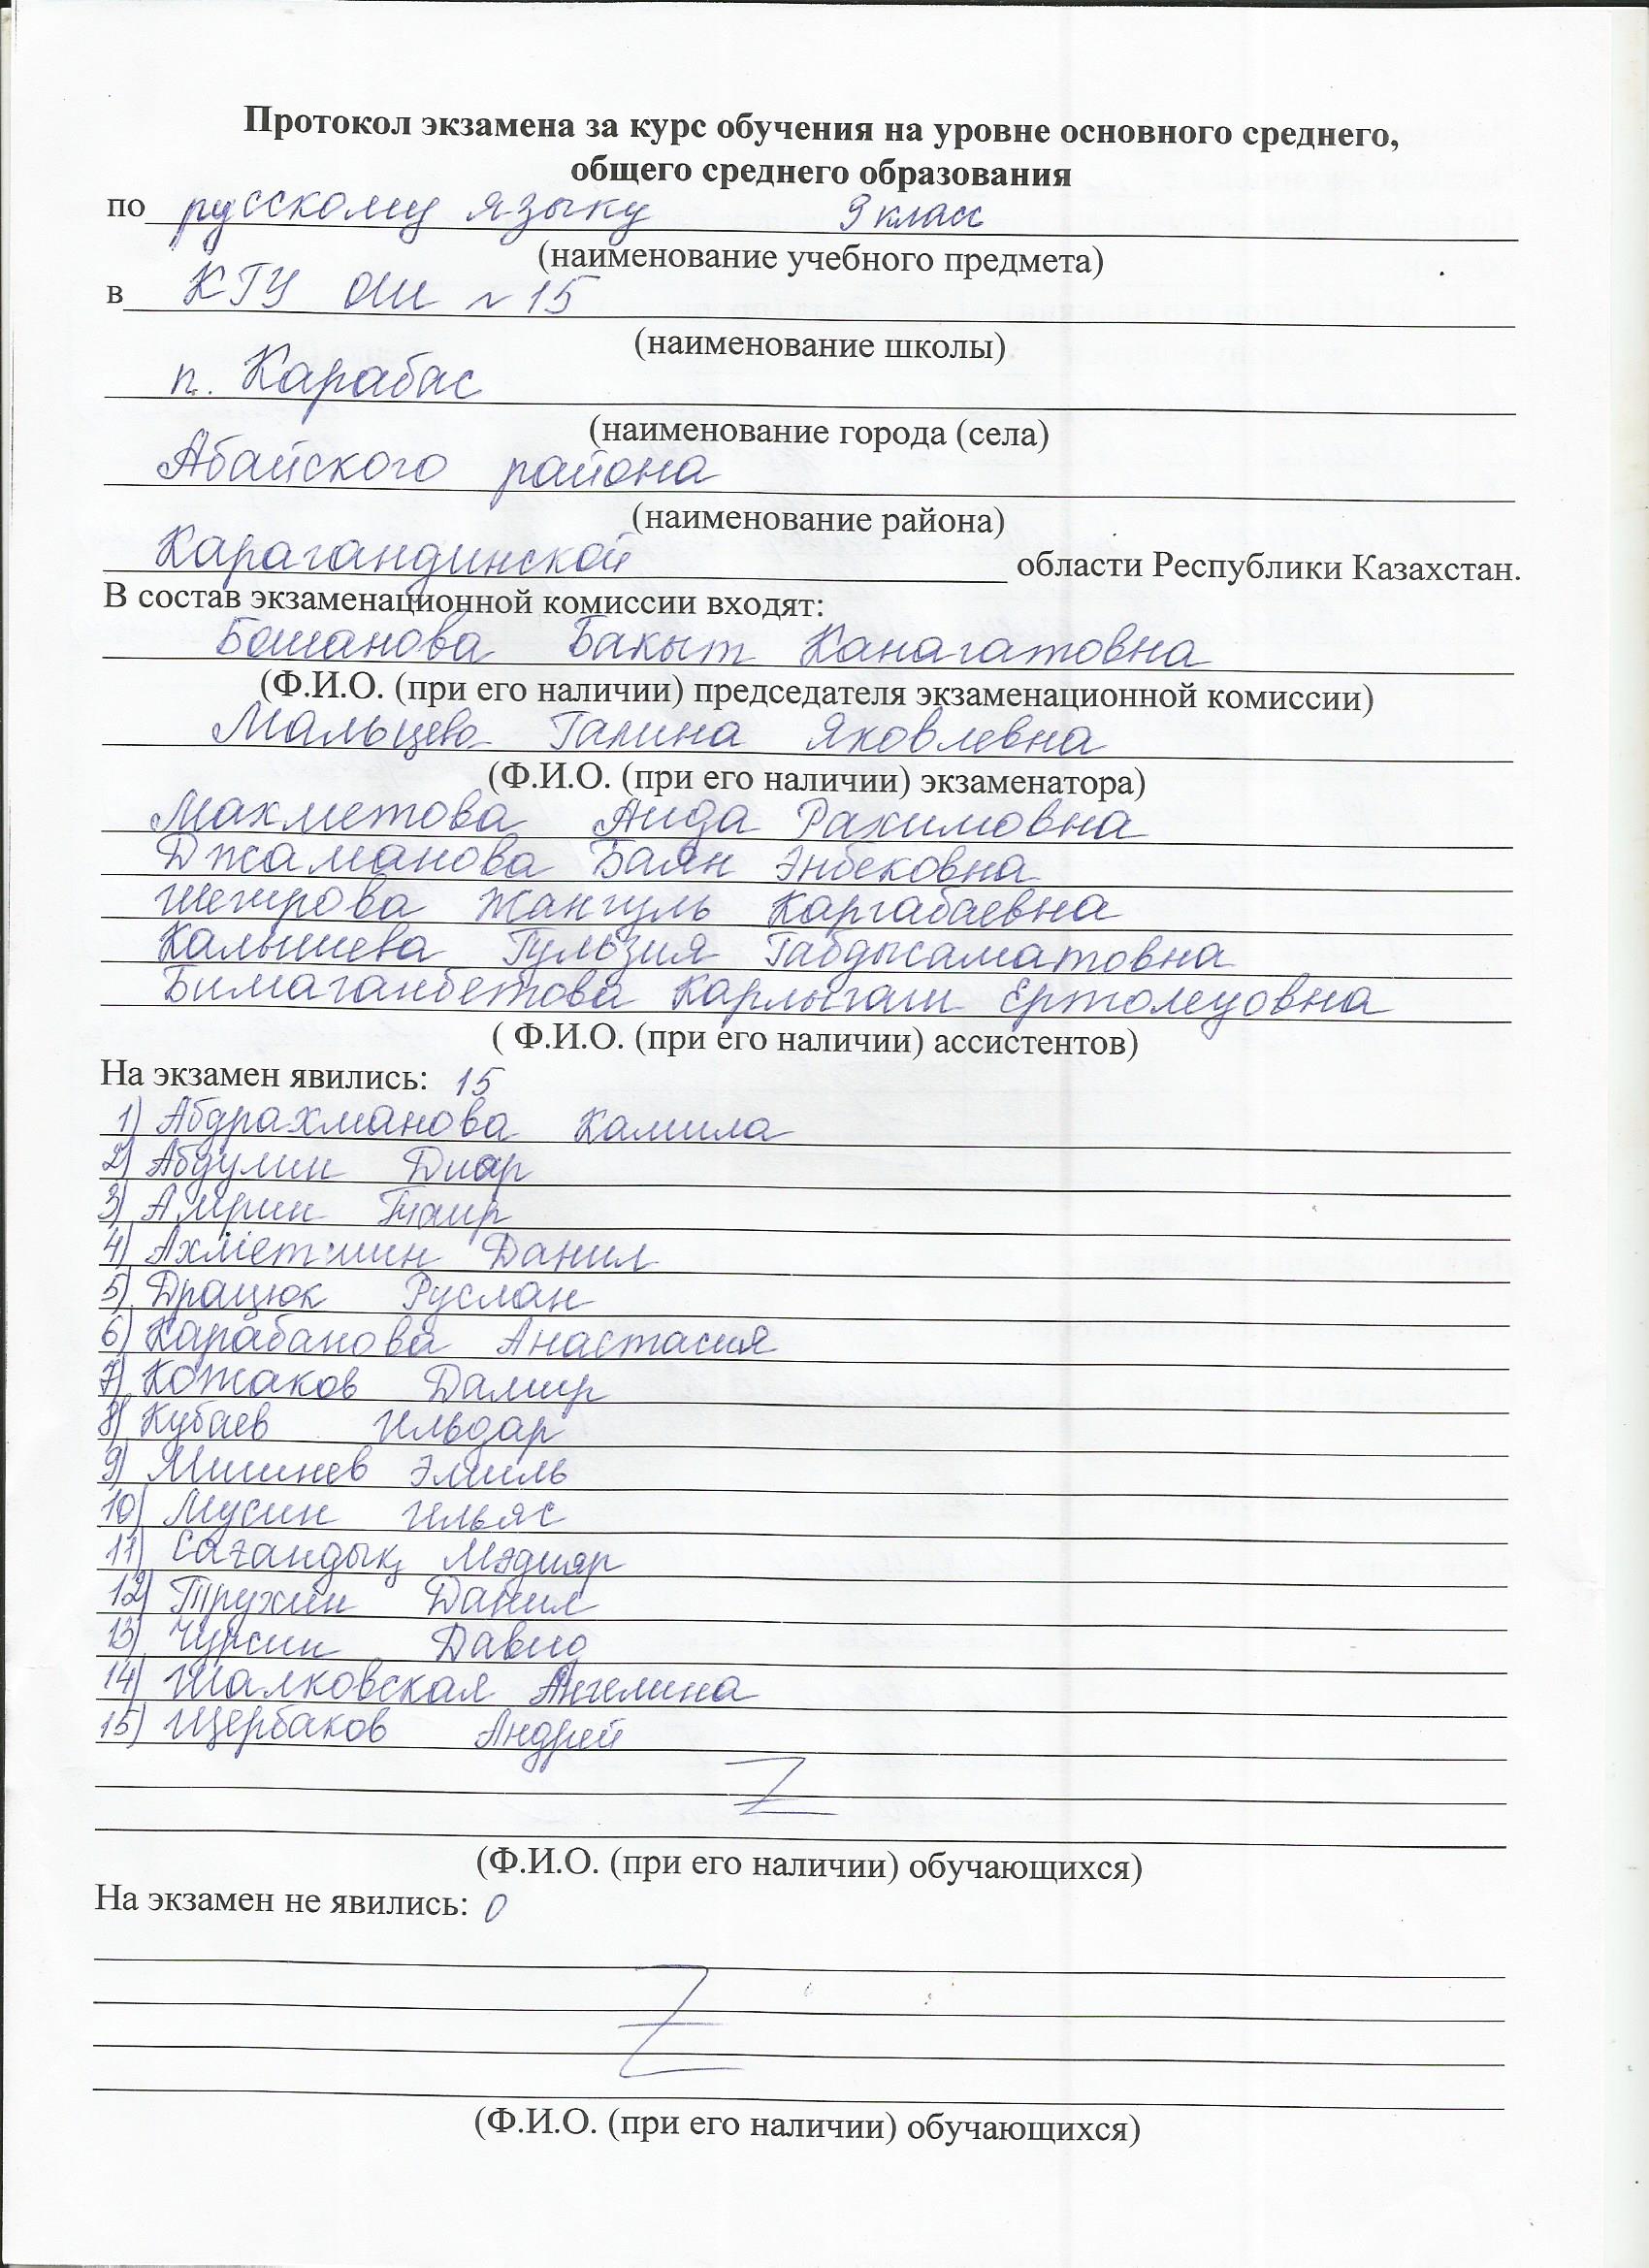 Протокол экзамена за курс обучения на уровне основного среднего,
общего среднего образования
по русскому языку 9 класс
(наименование учебного предмета)
в КГУ ОШ №15
(наименование школы)
п. Карабас
(наименование города (села)
Абайского района
(наименование района)
Карагандинской области Республики Казахстан.
В состав экзаменационной комиссии входят:
Бошанова Бакыт Канагатовна
(Ф.И.О. (при его наличии) председателя экзаменационной комиссии)
Мальцева Галина Яковлевна
(Ф.И.О. (при его наличии) экзаменатора)
Махметова Аида Рахимовна
Джаманова Баян Энбековна
Жангуль Каргабаевна
Калышева Гульзия Габдысаматовна
Бимаганбетова Карлыгаш Ертолеуовна
( Ф.И.О. (при его наличии) ассистентов)
На экзамен явились: 15
1) Абдрахманова Камила
2) Абдулин Диар
3) Амрин Таир
4) Ахметшин Данил
5) Драцюк Руслан
6) Карабанова Анастасия
7) Кожаков Дамир
8) Кубаев Ильдар
9) Мишнев Эмиль
10) Мусин Ильяс
11) Сағандық Мәдияр
12) Трухин Данил
13) Чурсин Давид
14) Шалковская Ангелина
15) Щербаков Андрей
Z
(Ф.И.О. (при его наличии) обучающихся)
На экзамен не явились: 0
Z
(Ф.И.О. (при его наличии) обучающихся)